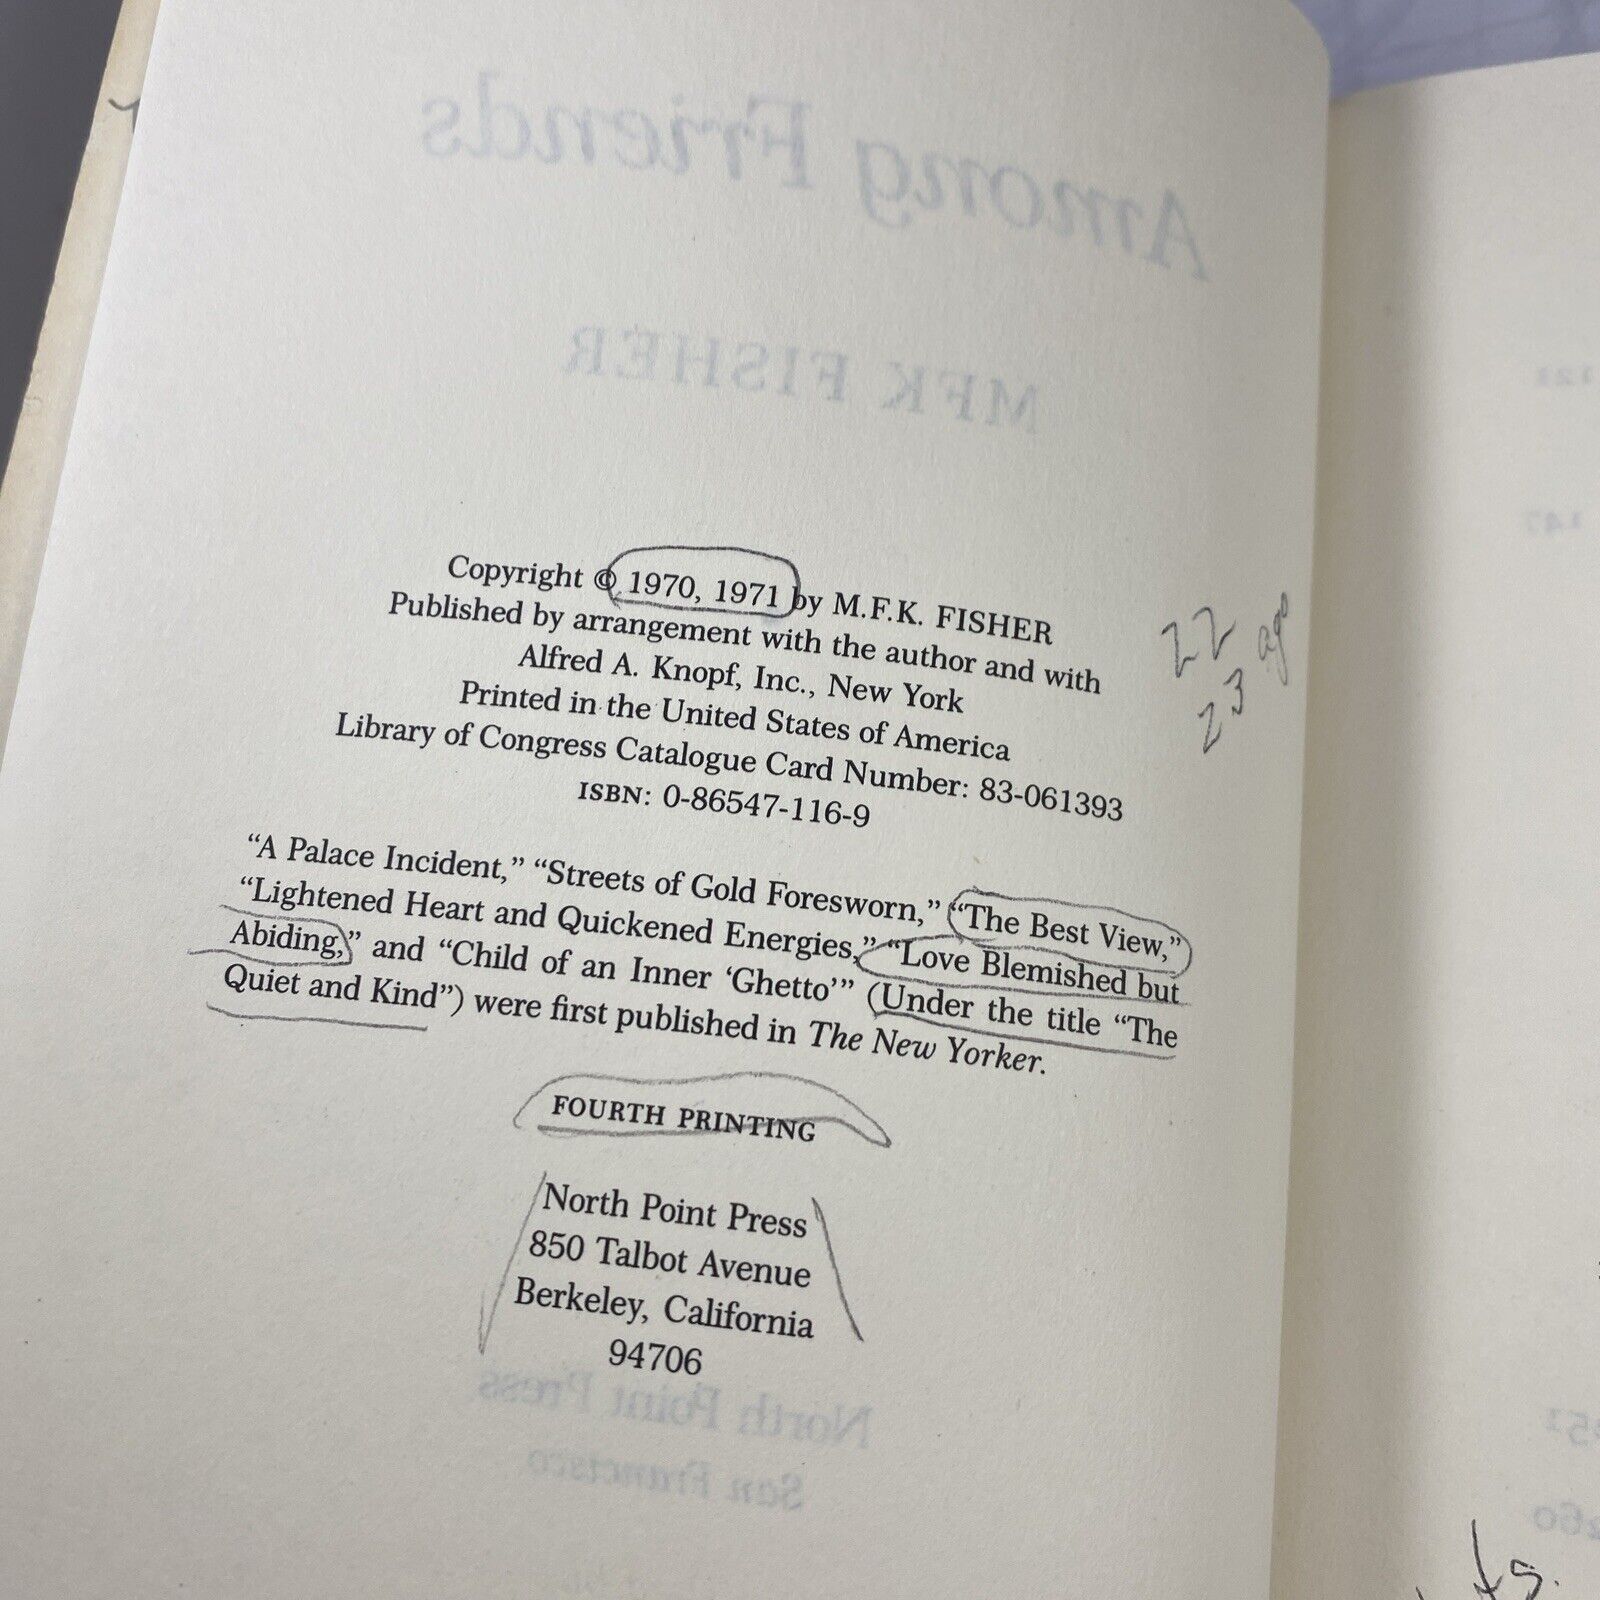 Among Friends
MFK FISHER
Copyright © 1970, 1971 by M.F.K. FISHER
Published by arrangement with the author and with
Alfred A. Knopf, Inc., New York
Printed in the United States of America
Library of Congress Catalogue Card Number: 83-061393
ISBN: 0-86547-116-9
22
23 ago
“A Palace Incident,” “Streets of Gold Foresworn,” “The Best View,”
“Lightened Heart and Quickened Energies,” “Love Blemished but
Abiding,” and “Child of an Inner ‘Ghetto’” (Under the title “The
Quiet and Kind”) were first published in The New Yorker.
FOURTH PRINTING
North Point Press
850 Talbot Avenue
Berkeley, California
94706
North Point Press
San Francisco
121
147
251
260